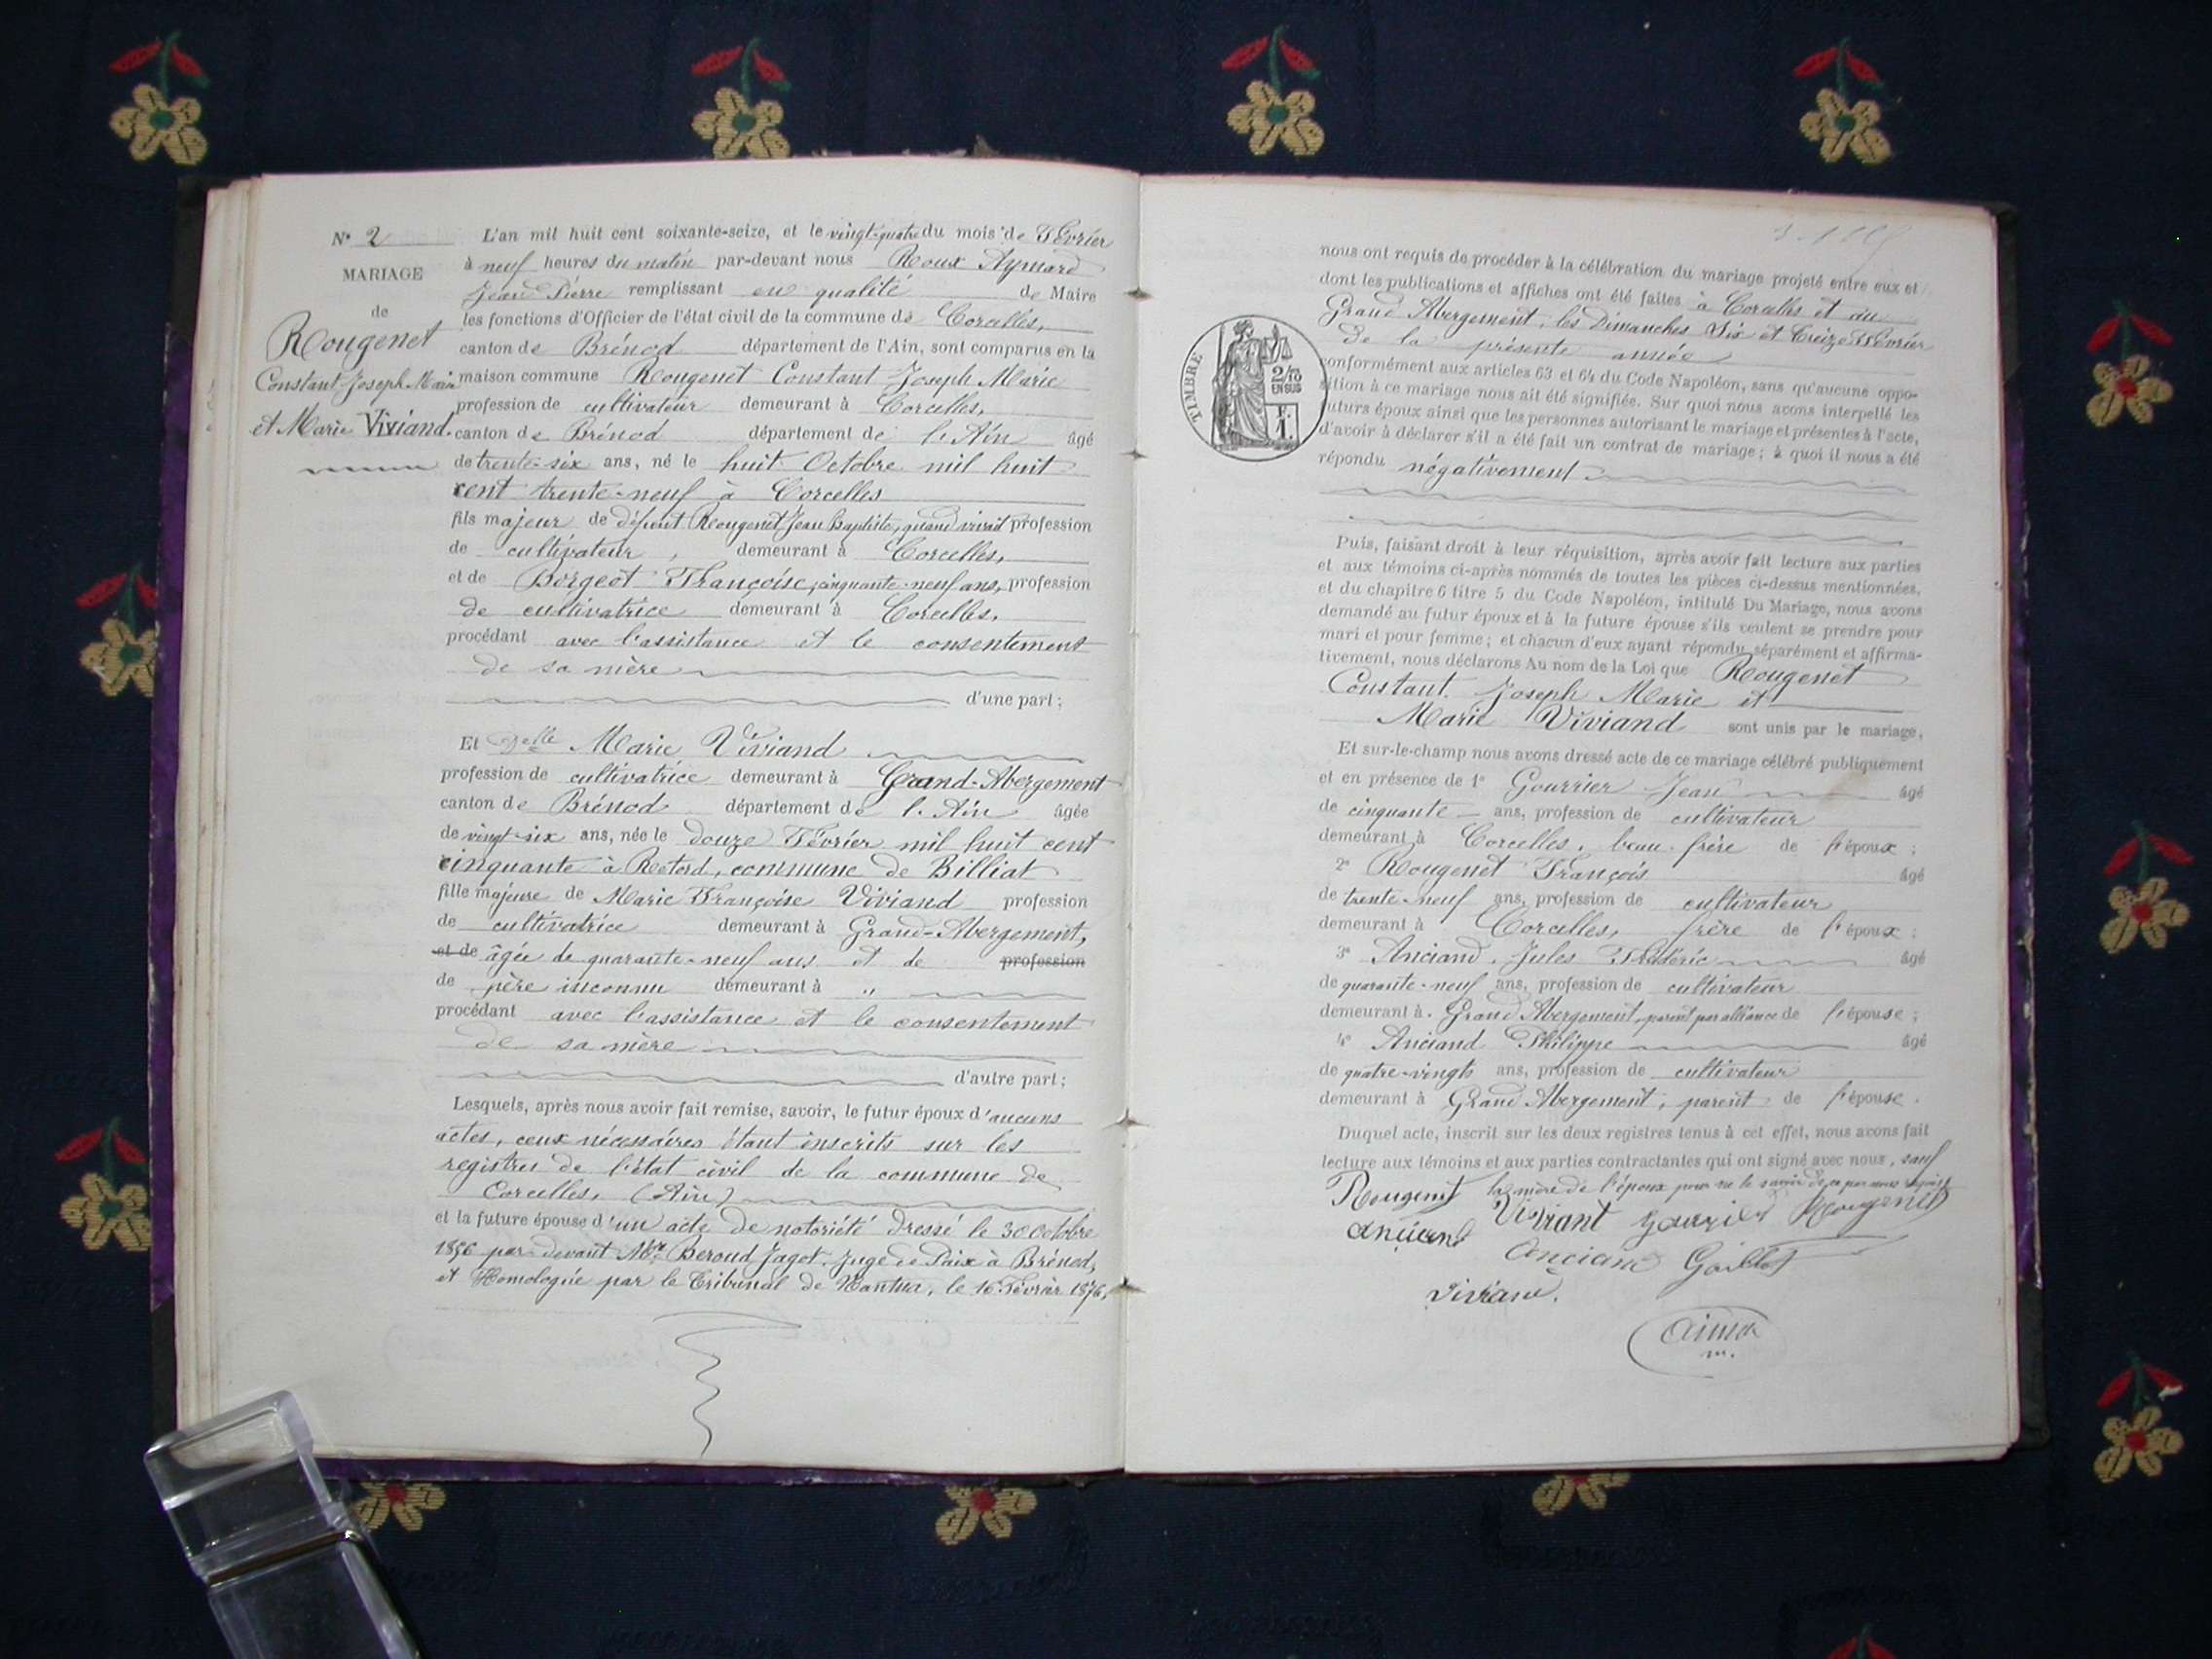 N° 2
MARIAGE
de
Rougenet
Constant Joseph Marie
et Marie Viviand.
L'an mil huit cent soixante-seize, et le vingt-quatre du mois de Février
à neuf heures du matin par-devant nous Roux Aymard
Jean Pierre remplissant en qualité de Maire
les fonctions d'Officier de l'état civil de la commune de Corcelles,
canton de Brénod département de l'Ain, sont comparus en la
maison commune Rougenet Constant Joseph Marie
profession de cultivateur demeurant à Corcelles,
canton de Brénod département de l'Ain âgé
de trente-six ans, né le huit Octobre mil huit
cent trente-neuf à Corcelles
fils majeur de défunt Rougenet Jean Baptiste, quand vivait profession
de cultivateur, demeurant à Corcelles,
et de Borgeot Françoise, cinquante-neuf ans, profession
de cultivatrice demeurant à Corcelles,
procédant avec l'assistance et le consentement
de sa mère
d'une part;
Et Delle Marie Viviand
profession de cultivatrice demeurant à Grand-Abergement
canton de Brénod département de l'Ain âgée
de vingt-six ans, née le douze Février mil huit cent
cinquante à Retord, commune de Billiat
fille majeure de Marie Françoise Viviand profession
de cultivatrice demeurant à Grand-Abergement,
et de âgée de quarante-neuf ans et de profession
de père inconnu demeurant à "
procédant avec l'assistance et le consentement
de sa mère
d'autre part;
Lesquels, après nous avoir fait remise, savoir, le futur époux d'aucuns
actes, ceux nécessaires étant inscrits sur les
registres de l'état civil de la commune de
Corcelles, (Ain)
et la future épouse d'un acte de notoriété dressé le 30 Octobre
par devant Mr Beroud Jagot, Juge de Paix à Brénod,
et Homologuée par le Tribunal de Nantua, le 16 Février 1876,
nous ont requis de procéder à la célébration du mariage projeté entre eux et
dont les publications et affiches ont été faites à Corcelles et au
Grand Abergement, les Dimanches Six et Treize Février
de la présente année
TIMBRE
2/10
EN SUS
F.
1.
conformément aux articles 63 et 64 du Code Napoléon, sans qu'aucune oppo-
sition à ce mariage nous ait été signifiée. Sur quoi nous avons interpellé les
futurs époux ainsi que les personnes autorisant le mariage et présentes à l'acte,
d'avoir à déclarer s'il a été fait un contrat de mariage; à quoi il nous a été
répondu négativement
Puis, faisant droit à leur réquisition, après avoir fait lecture aux parties
et aux témoins ci-après nommés de toutes les pièces ci-dessus mentionnées,
et du chapitre 6 titre 5 du Code Napoléon, intitulé Du Mariage, nous avons
demandé au futur époux et à la future épouse s'ils veulent se prendre pour
mari et pour femme; et chacun d'eux ayant répondu séparément et affirma-
tivement, nous déclarons Au nom de la Loi que Rougenet
Constant Joseph Marie et
Marie Viviand sont unis par le mariage,
Et sur-le-champ nous avons dressé acte de ce mariage célébré publiquement
et en présence de 1° Gourrier Jean âgé
de cinquante ans, profession de cultivateur
demeurant à Corcelles, beau-frère de l'époux;
2° Rougenet François âgé
de trente-neuf ans, profession de cultivateur
demeurant à Corcelles, frère de l'époux;
3° Anciand, Jules Frédéric âgé
de quarante-neuf ans, profession de cultivateur
demeurant à Grand Abergement, parent par alliance de l'épouse;
4° Anciand Philippe âgé
de quatre-vingts ans, profession de cultivateur
demeurant à Grand Abergement, parent de l'épouse.
Duquel acte, inscrit sur les deux registres tenus à cet effet, nous avons fait
lecture aux témoins et aux parties contractantes qui ont signé avec nous, sauf
la mère de l'époux pour ne le savoir de ce par nous requise
Rougenet Viviant Gourrier Rougenet
Anciand Anciand Gaillot
Viviand.